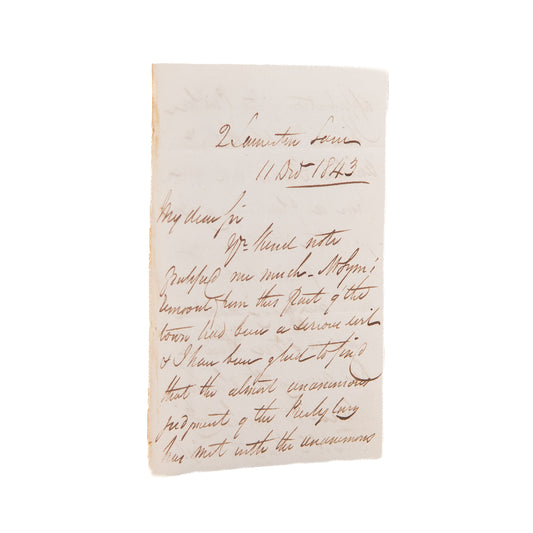 2
11 Dec 1843
My dear Sir
Yr. kind note
gratified me much –
removal from this Part of the
town had been a serious evil
& I have been glad to find
that the almost unanimous
judgment of the Presbytery
has met with the unanimous